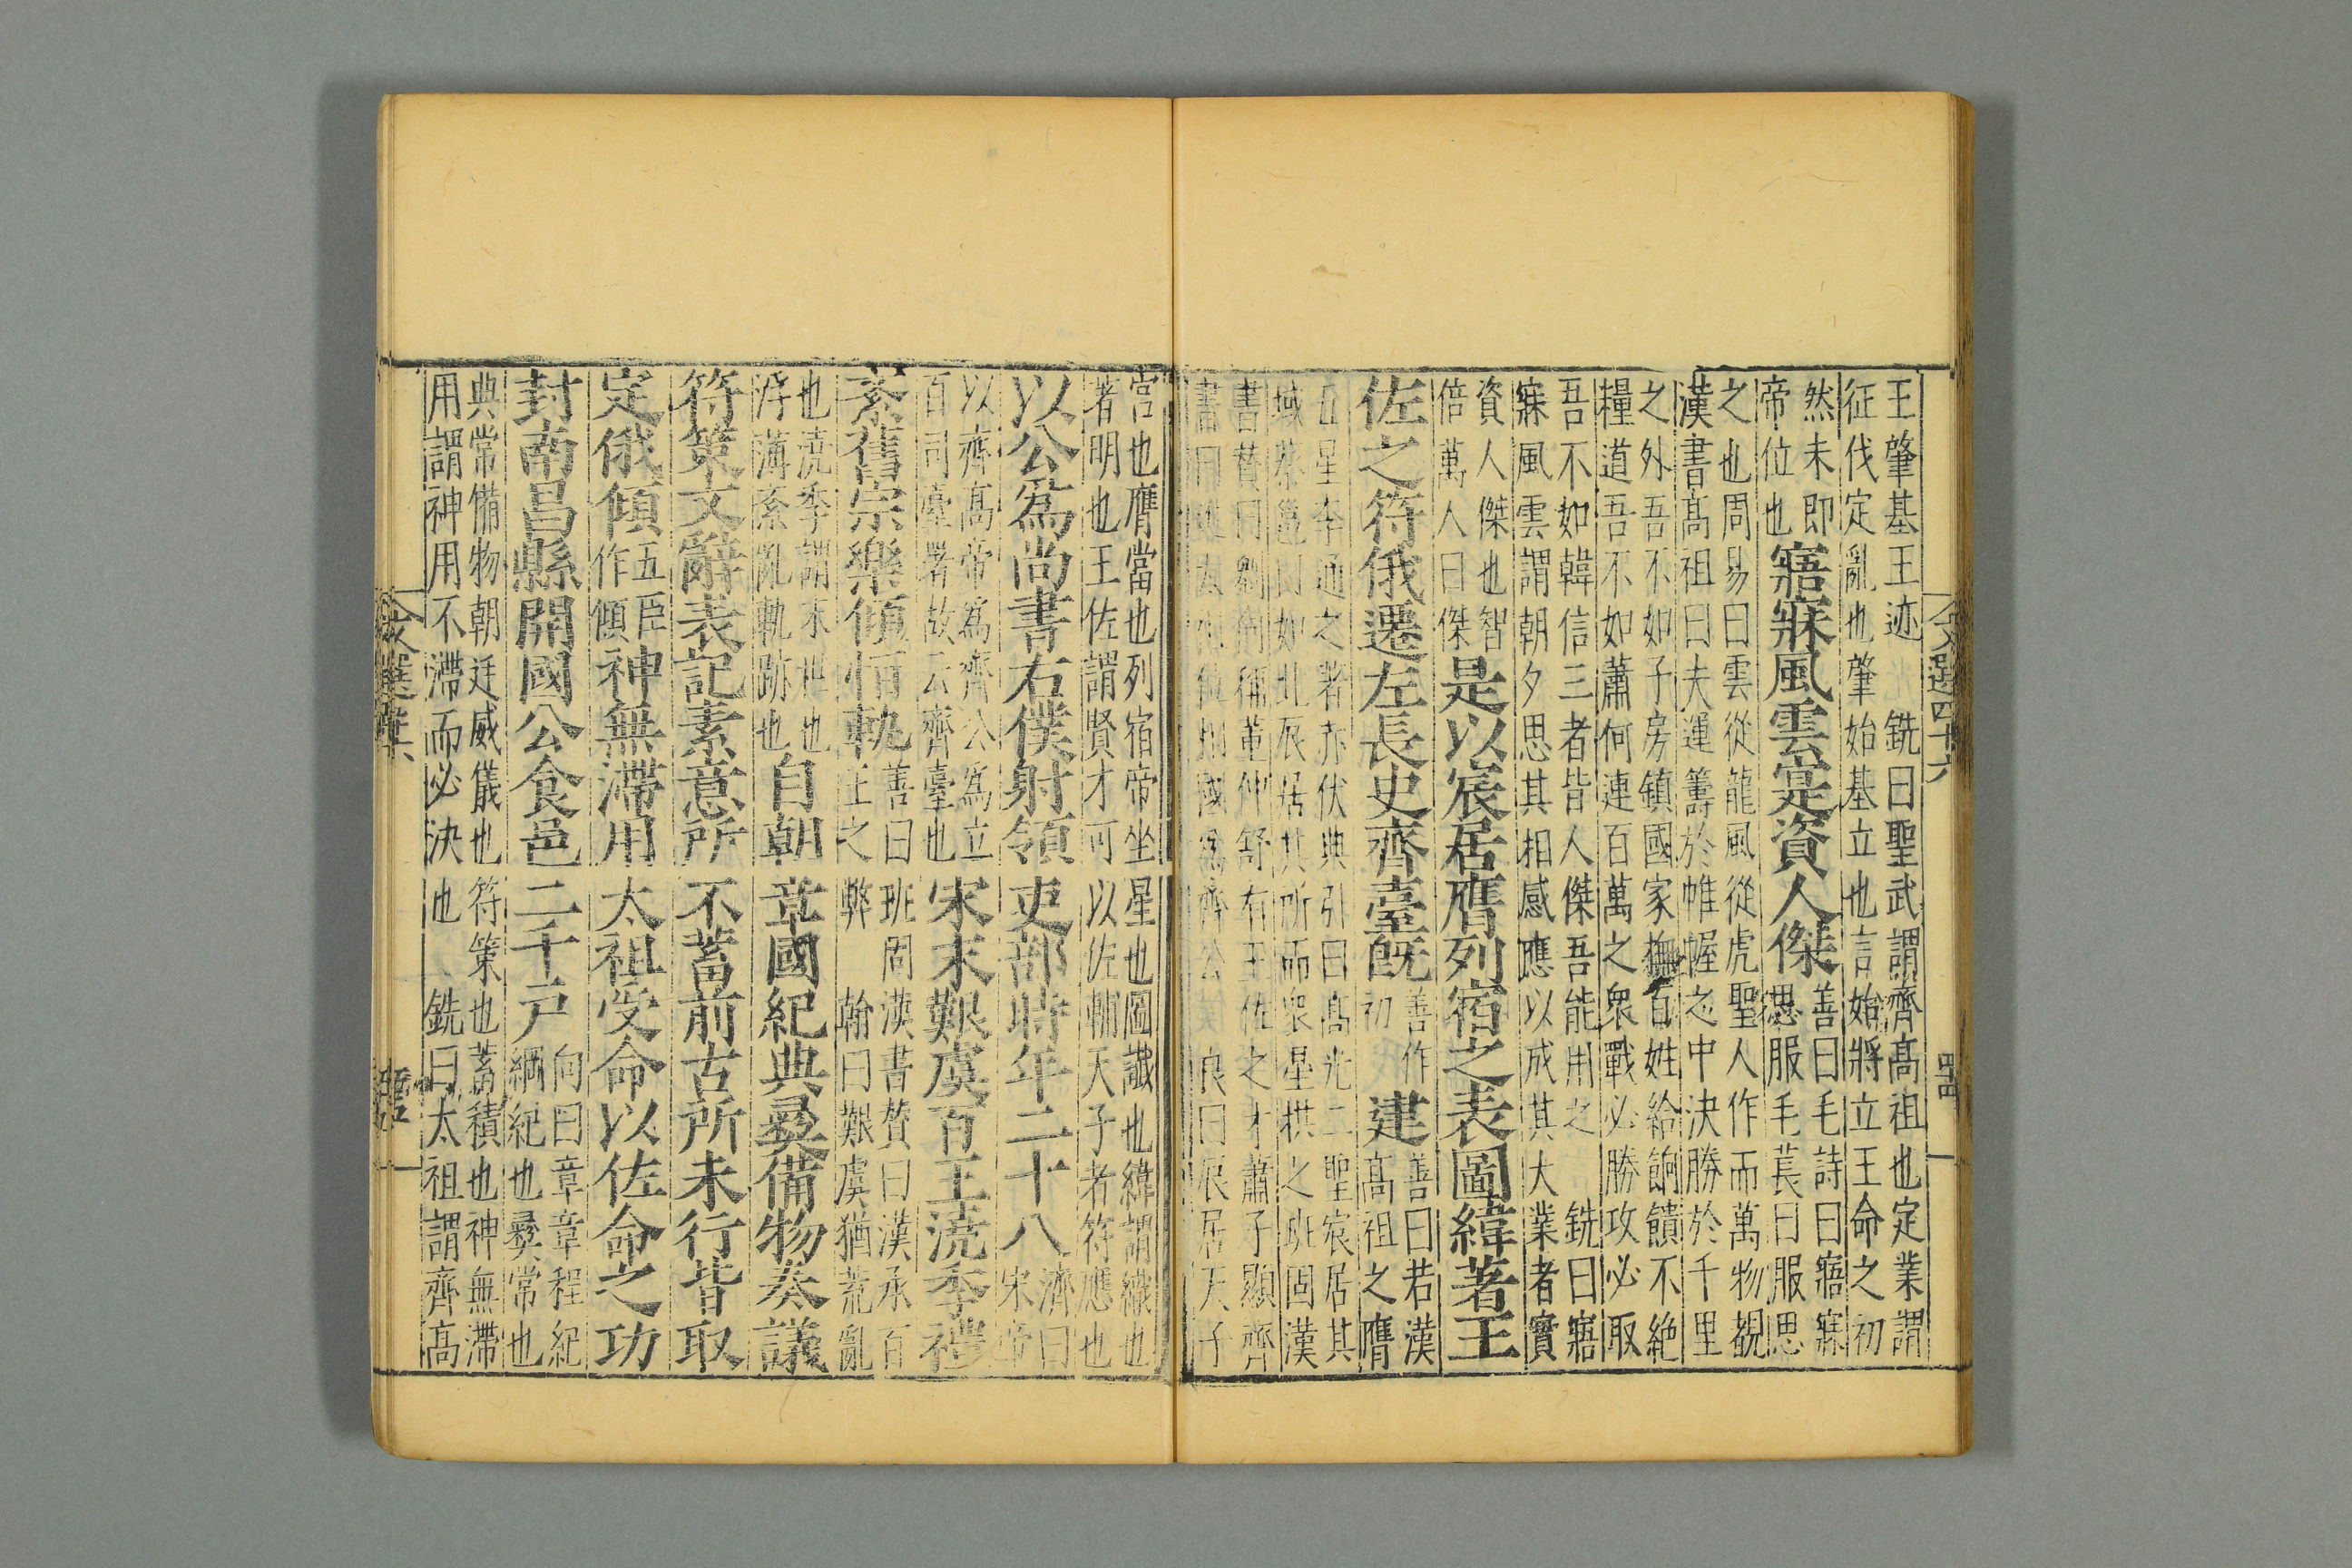 文選四十六
王肇基王迹 銑曰聖武謂齊高祖也定業謂
征伐定亂也肇始基立也言始將立王命之初
然未即
帝位也
寤寐風雲寔資人傑
善曰毛詩曰寤寐
思服毛萇曰服思
之也周易曰雲從龍風從虎聖人作而萬物覩
漢書高祖曰夫運籌於帷幄之中決勝於千里
之外吾不如子房鎮國家撫百姓給餉饋不絶
糧道吾不如蕭何連百萬之衆戰必勝攻必取
吾不如韓信三者皆人傑吾能用之 銑曰寤
寐風雲謂朝夕思其相感應以成其大業者實
資人傑也智
倍萬人曰傑
是以宸居膺列宿之表圖緯著王
佐之符俄遷左長史齊臺旣
善作
初
建
善曰若漢
高祖之膺
五星李通之著赤伏典引曰高光二聖宸居其
域蔡邕曰如北辰居其所而衆星拱之班固漢
書贊曰劉向稱董仲舒有王佐之才蕭子顯齊
良曰辰居天子
宮也膺當也列宿帝坐星也圖讖也緯謂纖也
著明也王佐謂賢才可以佐輔天子者符應也
以公爲尚書右僕射領吏部時年二十八
濟曰
宋帝
以齊高帝爲齊公爲立
百司臺署故云齊臺也
宋末艱虞百王澆季禮
紊舊宗樂傾恒軌
善曰班固漢書贊曰漢承百
王之弊 翰曰艱虞猶荒亂
也澆季謂末世也
浮薄紊亂軌跡也
自朝章國紀典彛備物奏議
符策文辭表記素意所不蓄前古所未行皆取
定俄傾
五臣
作傾
神無滯用太祖受命以佐命之功
封南昌縣開國公食邑二千戶
向曰章章程紀
綱紀也彛常也
典常備物朝廷威儀也符策也蓄積也神無滯
用謂神用不滯而必決也 銑曰太祖謂齊高